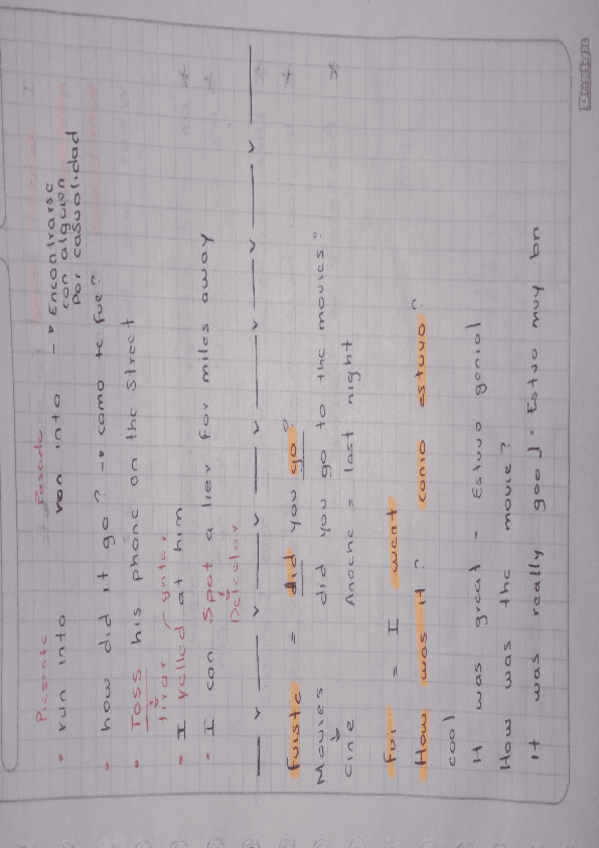 Presente Pasado
• run into ran into → Encontrarse
con alguien
Por casualidad
• how did it go? → como te fue?
• Toss his phone on the street
tirar grite.
• I yelled at him
• I can Spot a lier for miles away
Detectar
Fuiste = did you go?
Movies did you go to the movies?
Cine Anoche = last night
Fui = I went
How was it? como estuvo?
cool
It was great - Estuvo genial
How was the movie?
it was really good. Estuvo muy bn
Design